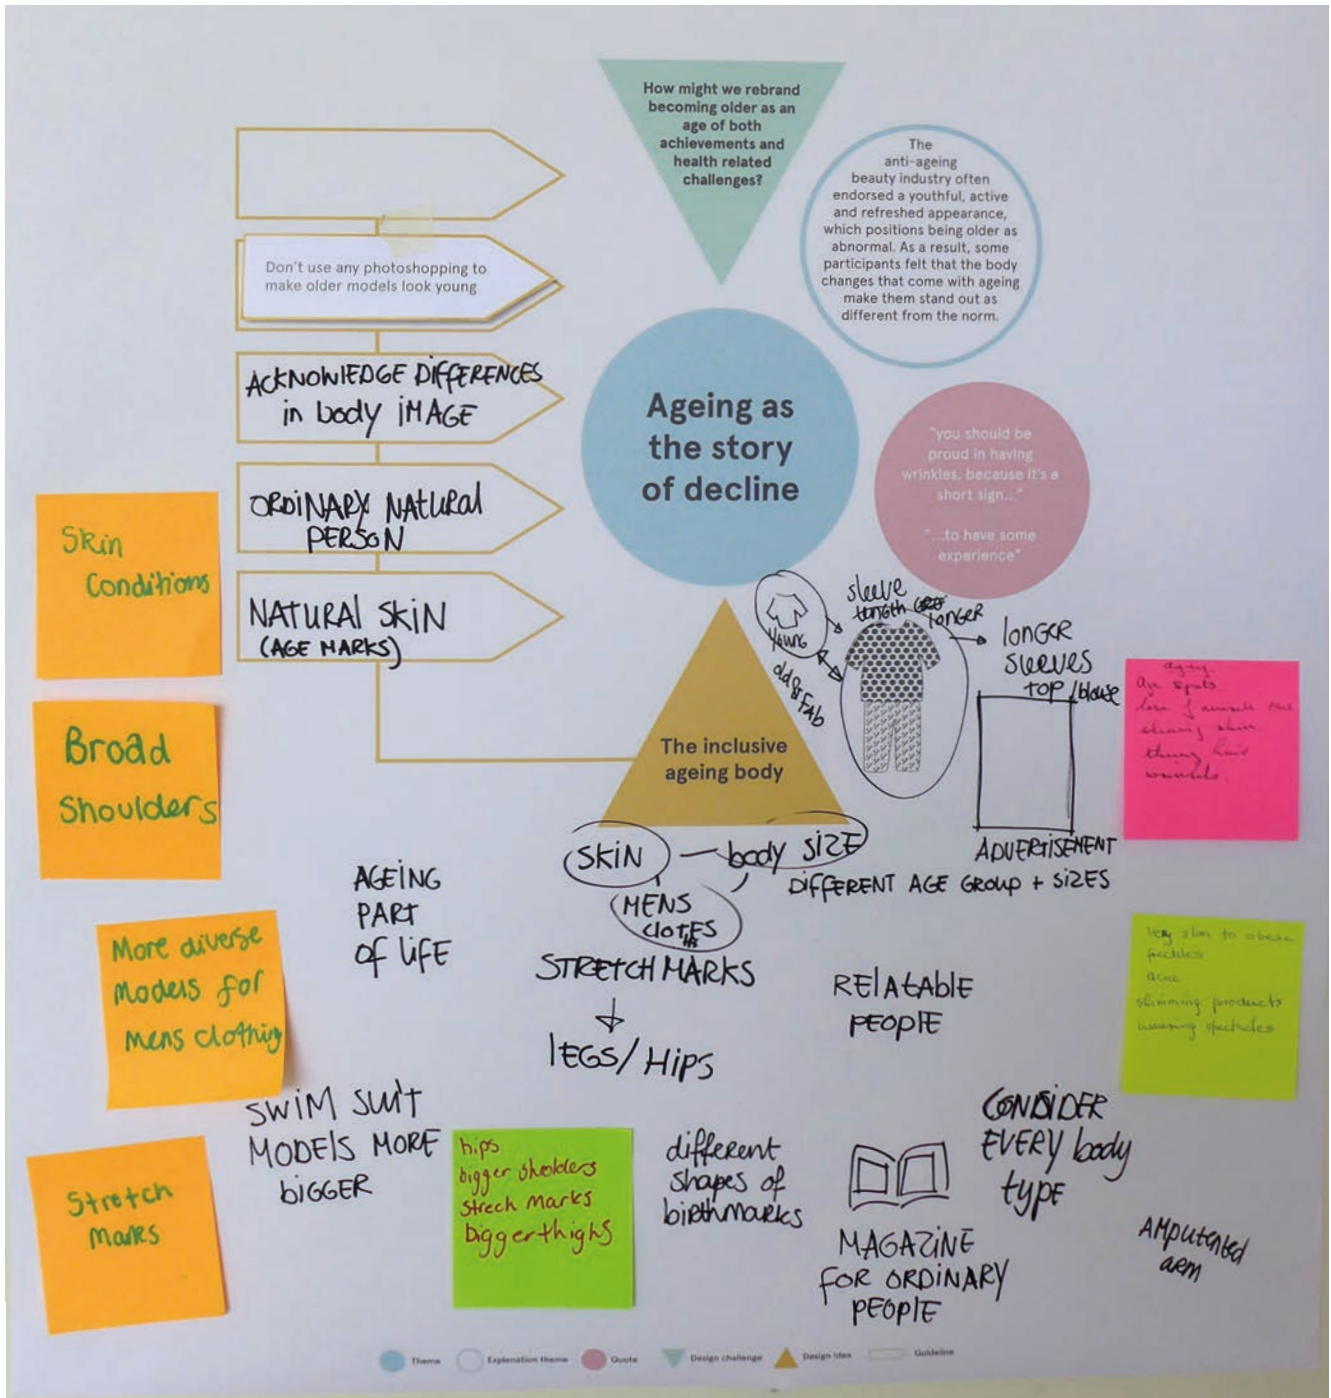 How might we rebrand
becoming older as an
age of both
achievements and
health related
challenges?
The
anti-ageing
beauty industry often
endorsed a youthful, active
and refreshed appearance,
which positions being older as
abnormal. As a result, some
participants felt that the body
changes that come with ageing
make them stand out as
different from the norm.
Don't use any photoshopping to
make older models look young
ACKNOWlEDGE DiffERENCES
in body iMAGE
ORDiNARY NATURAl
PERSON
NATURAl SKiN
(AGE MARKS)
Ageing as
the story
of decline
"you should be
proud in having
wrinkles, because it's a
short sign..."
"...to have some
experience"
Skin
Conditions
Broad
Shoulders
More diverse
Models for
Mens clothing
Stretch
Marks
YOUNG
old & FAb
sleeve
length
longer
lONGER
SLEEVES
TOP / blouse
ADVERTISEMENT
DiffERENT AGE GROUP + SiZES
age spots
The inclusive
ageing body
SKiN — body SiZE
MENS
clothES
AGEiNG
PART
Of LiFE
STRETCH MARKS
lEGS/Hips
RElATAblE
PEOPlE
Very slim to obese
freckles
acne
slimming products
wearing spectacles
SWiM SUiT
MODELS MORE
biGGER
hips
bigger sholders
strech Marks
bigger thighs
different
shapes of
birthmarks
MAGAZiNE
FOR ORDiNARY
PEOPlE
CONSiDER
EVERY body
TYPE
AMputented
aRM
Theme
Explanation theme
Quote
Design challenge
Design idea
Guideline